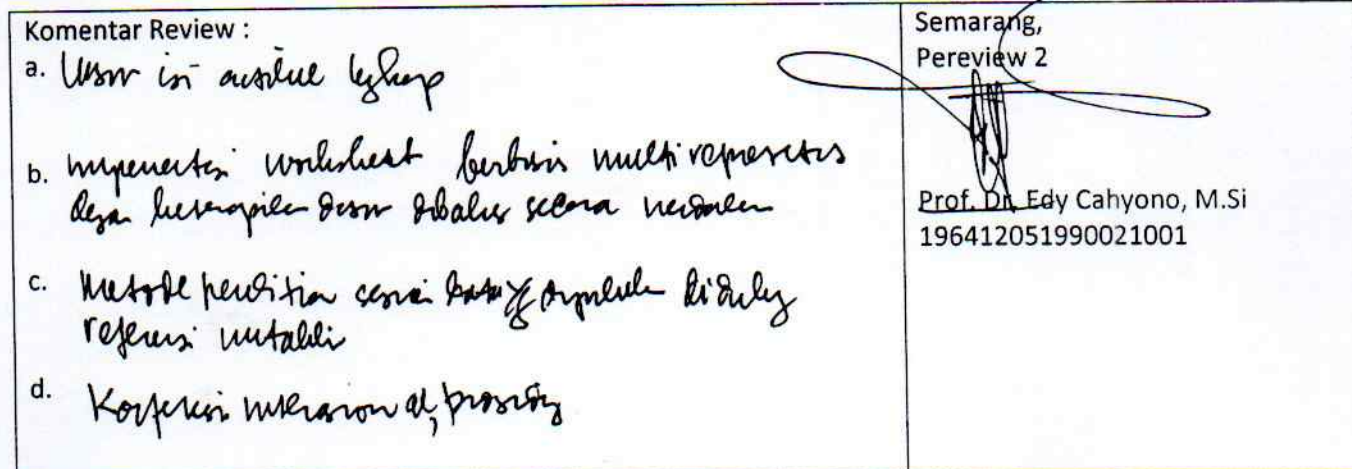 Komentar Review :
a. Unsur isi artikel lengkap
b. worksheet berbasis multirepresentasi
dengan dasar dibahas secara mendalam
c. Metode penelitian sesuai data yg didukung
referensi mutakhir
d. Konferensi internasional, prosiding
Semarang,
Pereview 2
Prof. Dr. Edy Cahyono, M.Si
196412051990021001